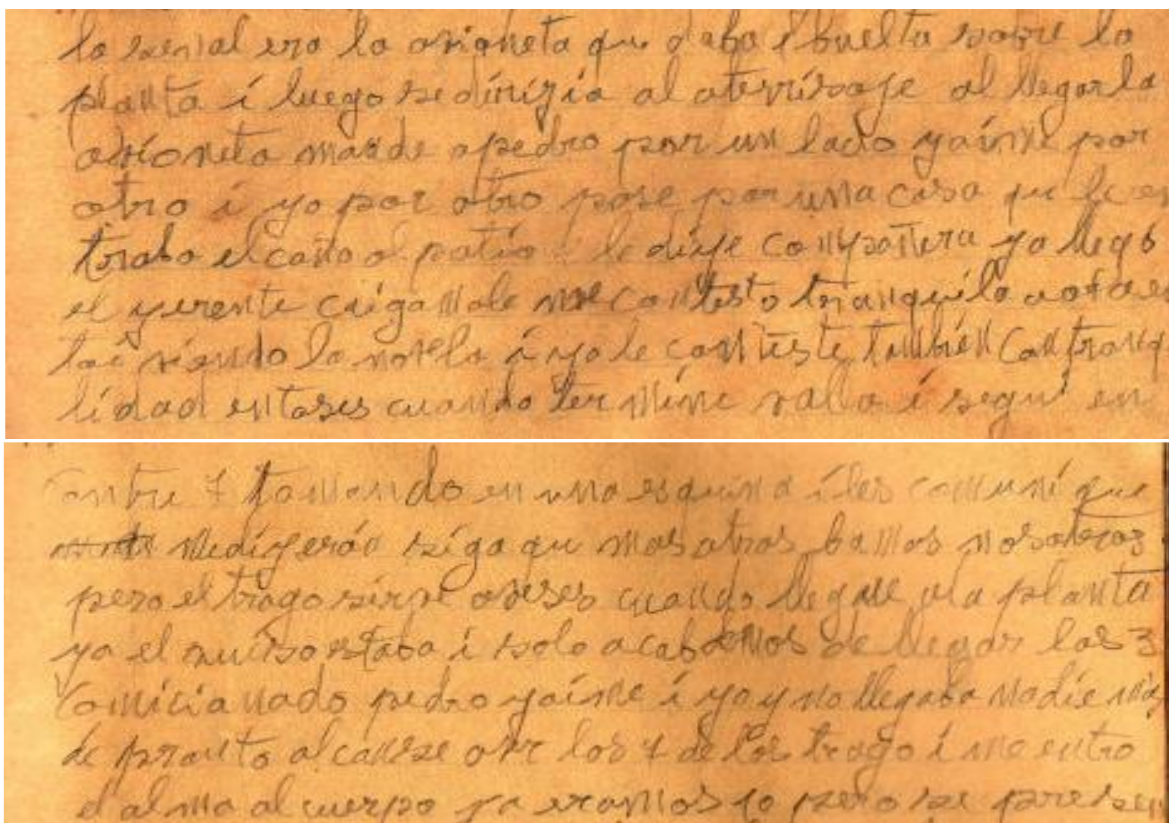 la senial era la avioneta que daba 1 buelta sovre la
planta i luego se dirijia al aterrisaje al llegar la
avioneta mande a pedro por un lado yaime por
otro i yo por otro pase por una casa que le en
traba el caño al patio i le dije compañera ya llegó
el yerente caigamole me contesto tranquilo aora es
toi viendo la novela i yo le conteste tambien con tranqi
lidad entoses cuando termine valla i segui en
contre 7 tomando en una esquina i les comuniqué
me dijeron siga que mas atras bamos nosotros
pero el trago sirve aveses cuando llegue ala planta
ya el suiso estaba i solo acabamos de llegar los 3
comicianado pedro yaime i yo y no llegaba nadie mas
de pronto alcanse aver los 7 de los trago i me entro
el alma al cuerpo ya eramos 10 pero se presen